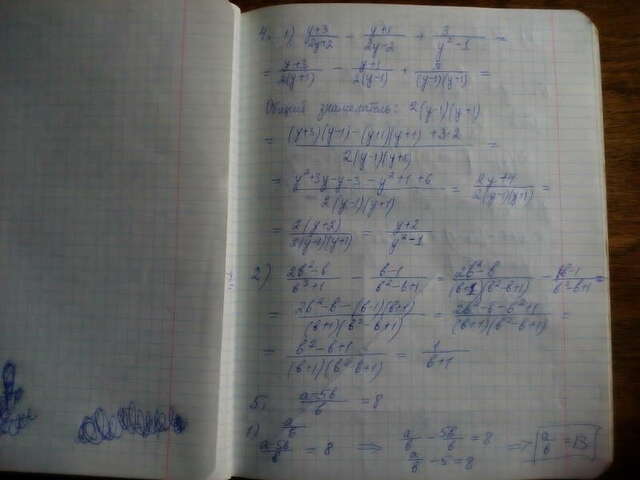 4. 1) (y+3)/(2y+2) - (y+1)/(2y-2) + 3/(y²-1) =
= (y+3)/(2(y+1)) - (y+1)/(2(y-1)) + 3/((y-1)(y+1)) =
Общий знаменатель: 2(y-1)(y+1)
= ((y+3)(y-1) - (y+1)(y+1) + 3·2)/(2(y-1)(y+1)) =
= (y²+3y-y-3-y²+1+6)/(2(y-1)(y+1)) = (2y+4)/(2(y-1)(y+1)) =
= (2(y+2))/(2(y-1)(y+1)) = (y+2)/(y²-1)
2) (2b²-b)/(b³+1) - (b-1)/(b²-b+1) = (2b²-b)/((b+1)(b²-b+1)) - (b-1)/(b²-b+1) =
= (2b²-b-(b-1)(b+1))/((b+1)(b²-b+1)) = (2b²-b-b²+1)/((b+1)(b²-b+1)) =
= (b²-b+1)/((b+1)(b²-b+1)) = 1/(b+1)
5. (a-5b)/b = 8
1) a/b
(a-5b)/b = 8 ⇒ a/b - 5b/b = 8 ⇒ a/b = 13
a/b - 5 = 8